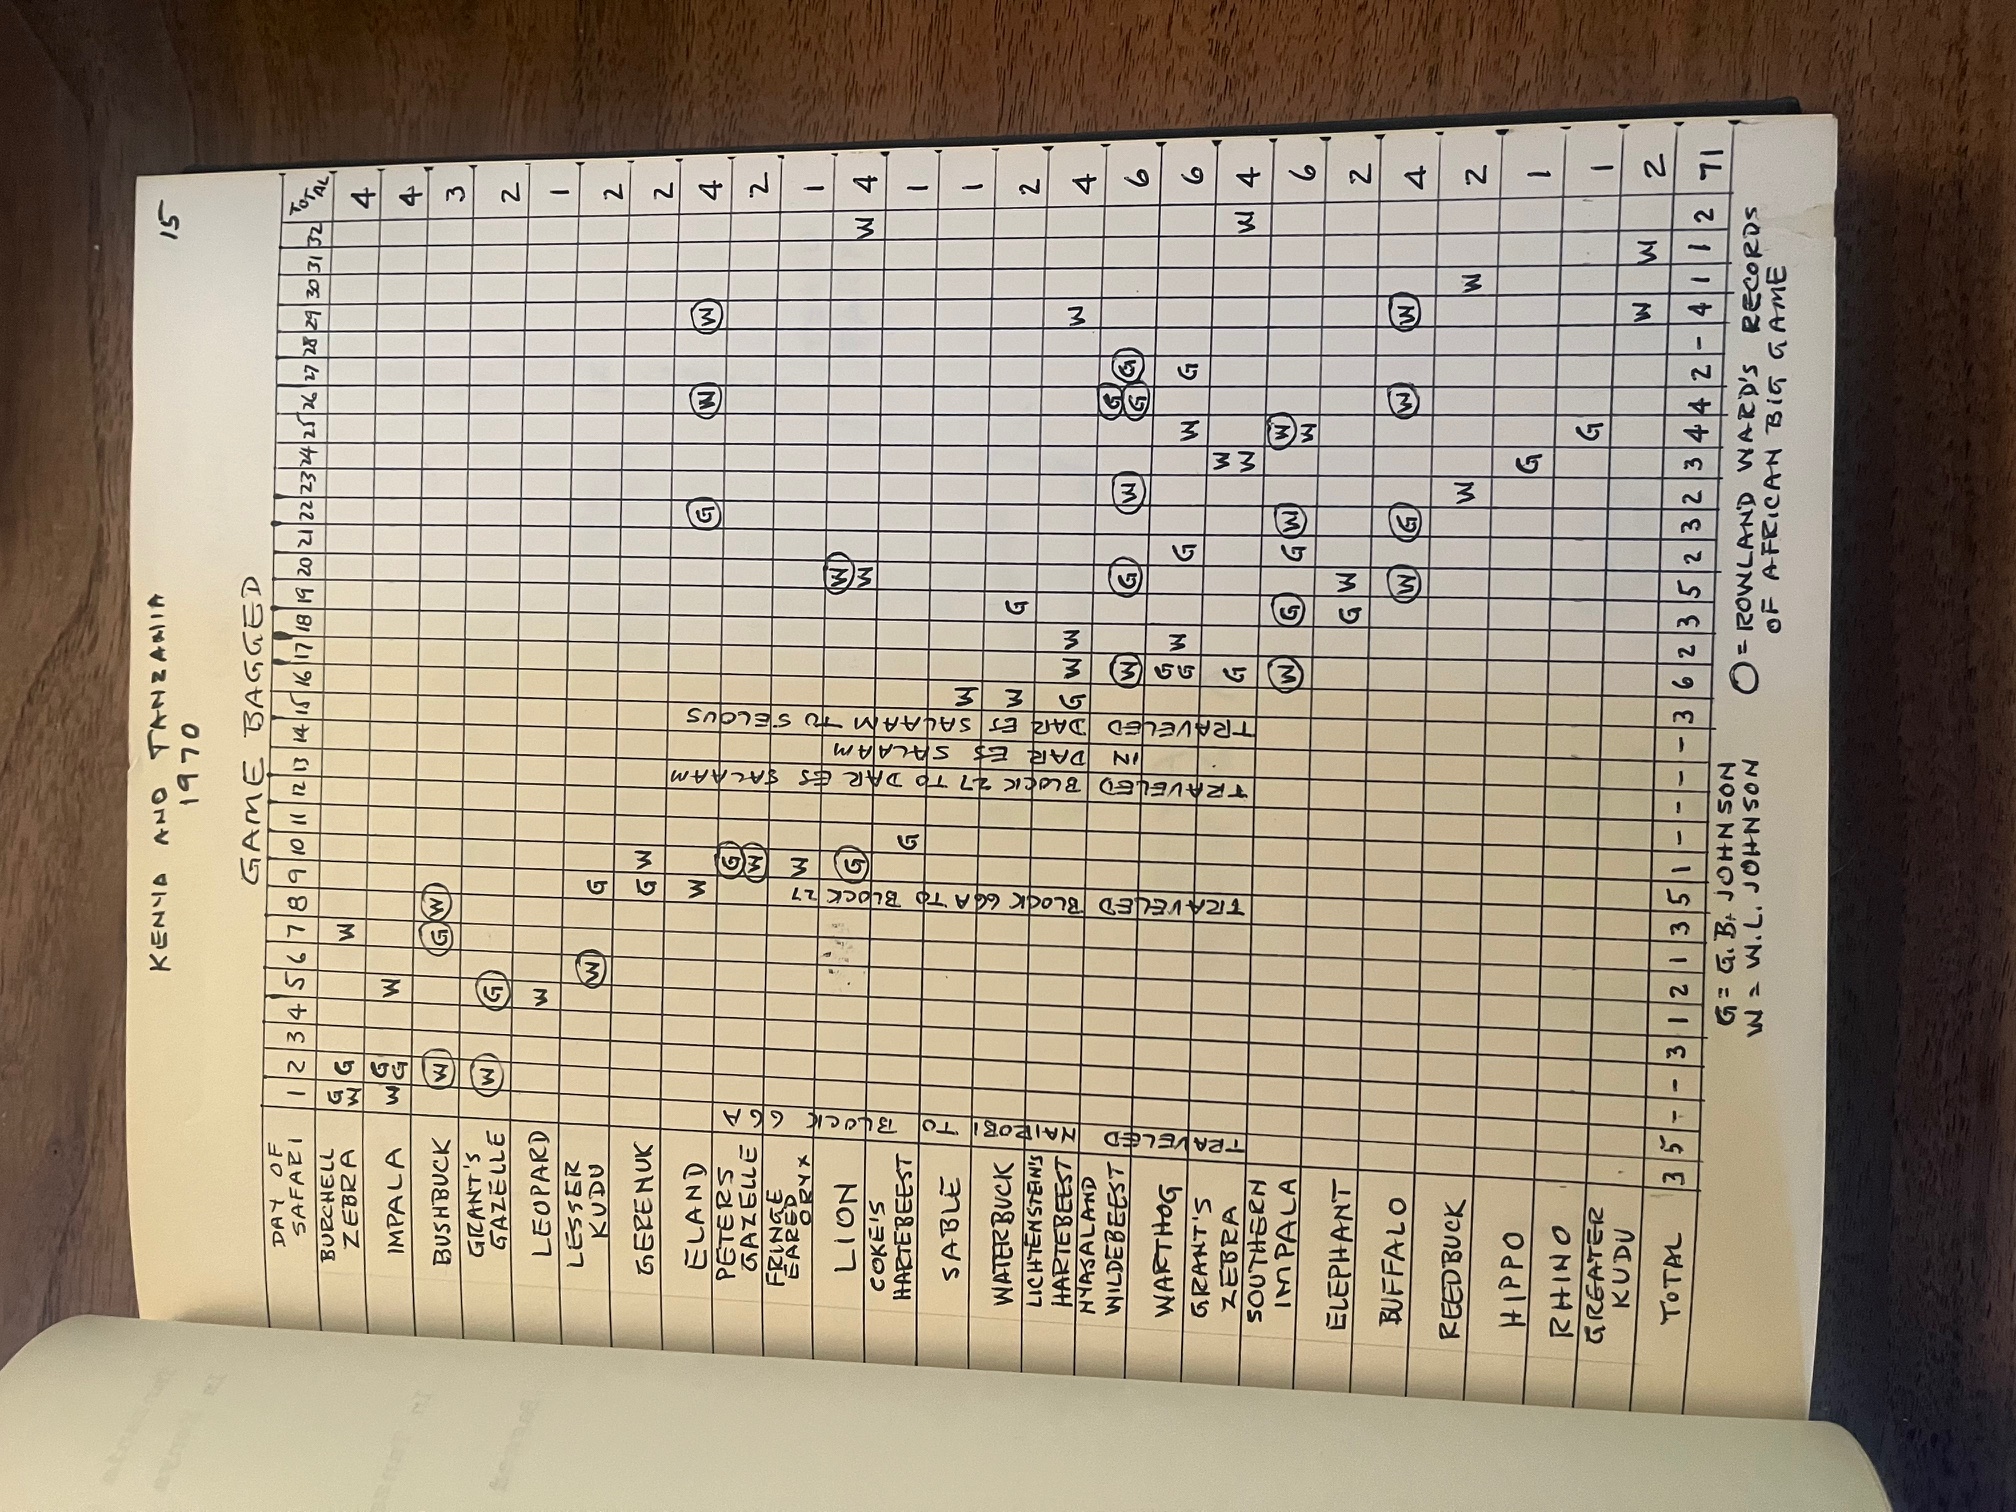 KENYA AND TANZANIA
15
1970
GAME BAGGED
DAY OF SAFARI 1 2 3 4 5 6 7 8 9 10 11 12 13 14 15 16 17 18 19 20 21 22 23 24 25 26 27 28 29 30 31 32 TOTAL
BURCHELL ZEBRA G W G W 4
IMPALA W G G W 4
BUSHBUCK W G W 3
GRANT'S GAZELLE W G 2
LEOPARD W 1
LESSER KUDU W G 2
GERENUK G W 2
ELAND W G W W 4
PETERS GAZELLE G W 2
FRINGE EARED ORYX W 1
LION G W W W 4
COKE'S HARTEBEEST G 1
SABLE W 1
WATERBUCK W G 2
LICHTENSTEIN'S HARTEBEEST G W W W 4
NYASALAND WILDEBEEST W G W G G G 6
WARTHOG G G W G W G 6
GRANT'S ZEBRA G W W W 4
SOUTHERN IMPALA W G G W W W 6
ELEPHANT G W 2
BUFFALO W G W W 4
REEDBUCK W W 2
HIPPO G 1
RHINO G 1
GREATER KUDU W W 2
TOTAL 3 5 - - 3 1 2 1 3 5 1 - - - - 3 6 2 3 5 2 3 2 3 4 4 2 - 4 1 1 2 71
TRAVELED NAIROBI TO BLOCK 66A
TRAVELED BLOCK 66A TO BLOCK 27
TRAVELED BLOCK 27 TO DAR ES SALAAM
IN DAR ES SALAAM
TRAVELED DAR ES SALAAM TO SELOUS
G = G.B. JOHNSON
W = W.L. JOHNSON
O = ROWLAND WARD'S RECORDS
OF AFRICAN BIG GAME